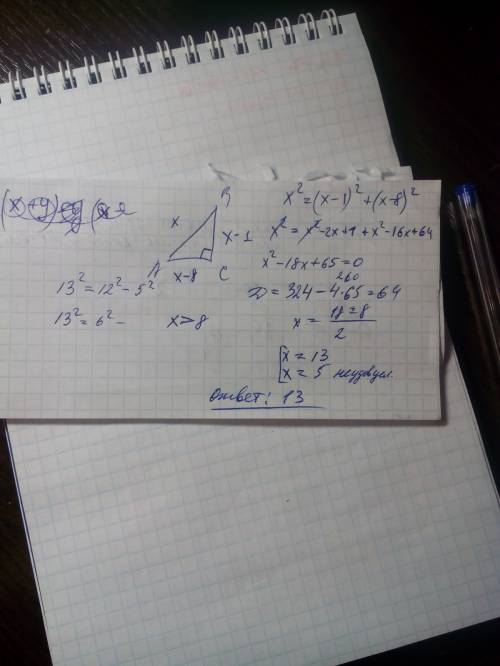 B
x
x-1
A
x-8
C
13² = 12² - 5²
13² = 6² -
x > 8
x² = (x-1)² + (x-8)²
x² = x² - 2x + 1 + x² - 16x + 64
x² - 18x + 65 = 0
260
D = 324 - 4·65 = 64
x = (18±8)/2
[x = 13
x = 5 неудвул.
Ответ: 13